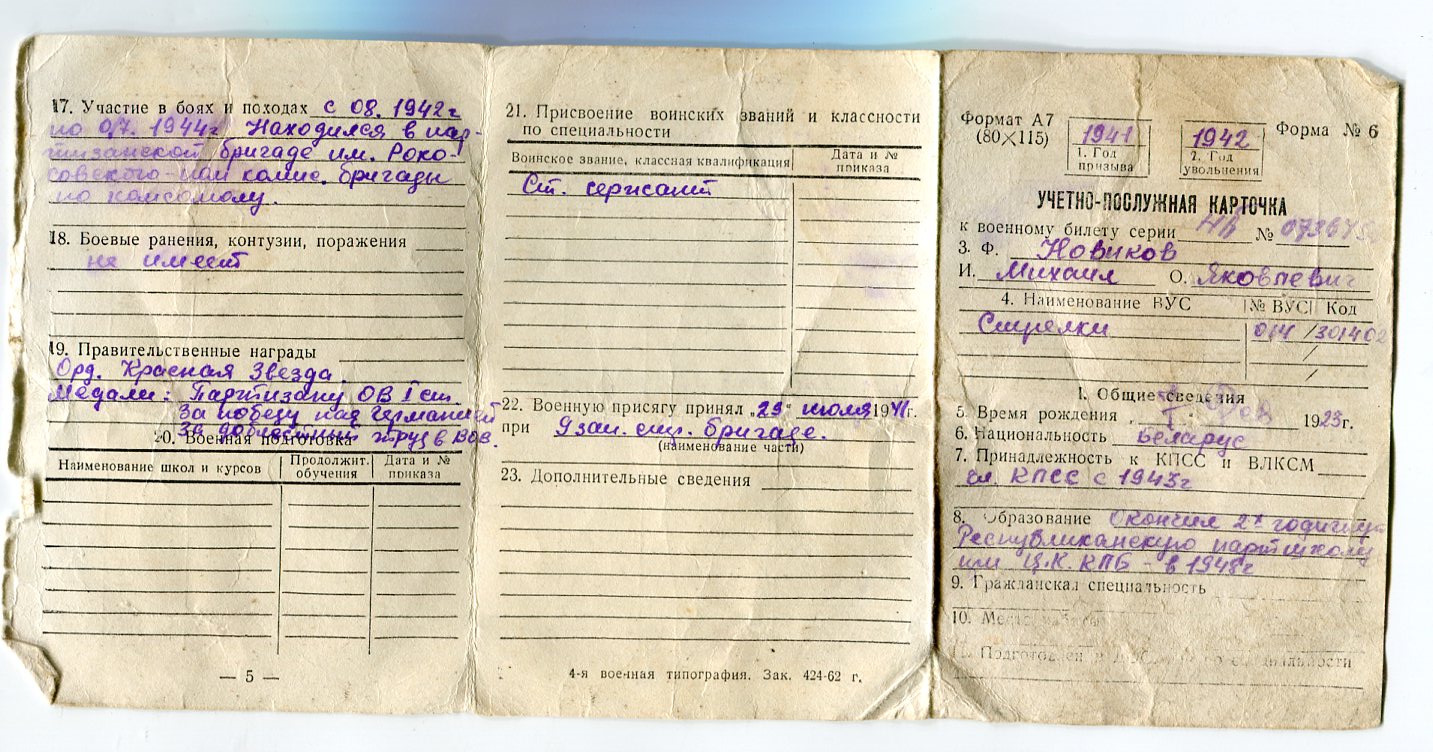 17. Участие в боях и походах с 08. 1942г
по 07. 1944г Находился в пар-
тизанской бригаде им. Роко-
совского - пом комис. бригады
по комсомолу.
18. Боевые ранения, контузии, поражения
не имеет
19. Правительственные награды
Орд. Красная Звезда
Медали: Партизану ОВ I ст.
За победу над Германией
За доблестный труд в ВОВ.
20. Военная подготовка
Наименование школ и курсов Продолжит. обучения Дата и № приказа
— 5 —
21. Присвоение воинских званий и классности
по специальности
Воинское звание, классная квалификация Дата и № приказа
Ст. сержант
22. Военную присягу принял „29" июля 1941г.
при Узап. стр. бригаде.
(наименование части)
23. Дополнительные сведения
4-я военная типография. Зак. 424-62 г.
Формат А7
(80×115)
1941
1. Год призыва
1942
2. Год увольнения
Форма № 6
УЧЕТНО-ПОСЛУЖНАЯ КАРТОЧКА
к военному билету серии НБ №
3. Ф. Новиков
И. Михаил О. Яковлевич
4. Наименование ВУС № ВУС Код
Стрелки 014 /301402
1. Общие сведения
5. Время рождения 1923г.
6. Национальность Беларус
7. Принадлежность к КПСС и ВЛКСМ
чл. КПСС с 1943г
8. Образование Окончил 2х годичную
Республиканскую партшколу
при Ц.К. КПБ - в 1948г
9. Гражданская специальность
10.
11. Подготовлен в по специальности